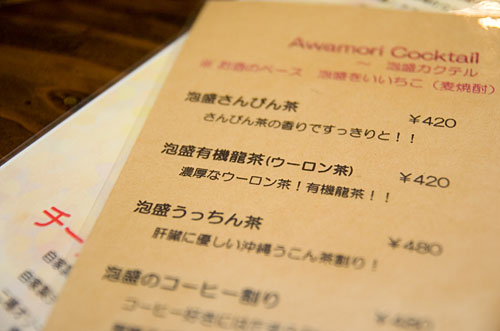 Awamori Cocktail
～ 泡盛カクテル
※ お酒のベース 泡盛をいいちこ（麦焼酎）
泡盛さんぴん茶 ¥420
さんぴん茶の香りですっきりと！！
泡盛有機龍茶(ウーロン茶) ¥420
濃厚なウーロン茶！有機龍茶！！
泡盛うっちん茶 ¥480
肝臓に優しい沖縄うこん茶割り！
泡盛のコーヒー割り
コーヒー好きには
チー
自家
自家製